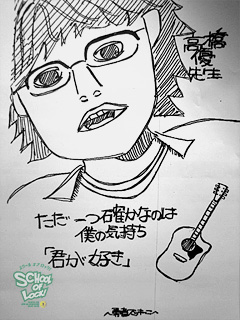 高橋
優
先生
ただ一つ確かなのは
僕の気持ち
「君が好き」
SCHOOL
OF
LOCK!